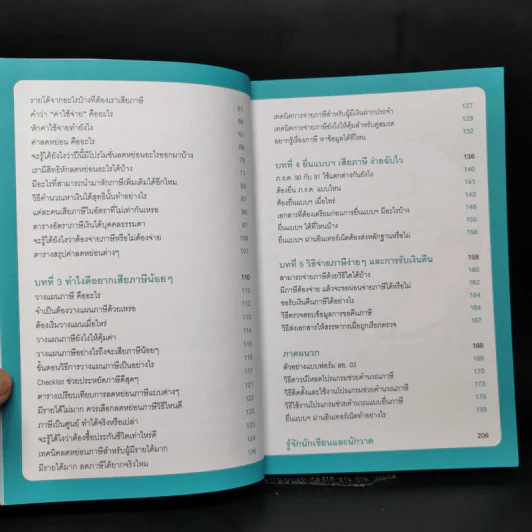 รายได้จากอะไรบ้างที่ต้องเราเสียภาษี
คำว่า "ค่าใช้จ่าย" คืออะไร 61
หักค่าใช้จ่ายทำยังไง 68
ค่าลดหย่อน คืออะไร 68
จะรู้ได้ยังไงว่าปีนี้มีโปรโมชั่นลดหย่อนอะไรออกมาบ้าง 70
เรามีสิทธิหักลดหย่อนอะไรได้บ้าง 71
มีอะไรที่สามารถนำมาหักภาษีเพิ่มเติมได้อีกไหม
วิธีคำนวณหาเงินได้สุทธินั้นทำอย่างไร
แต่ละคนเสียภาษีในอัตราที่ไม่เท่ากันเหรอ
ตารางอัตราภาษีเงินได้บุคคลธรรมดา
จะรู้ได้ยังไงว่าต้องจ่ายภาษีหรือไม่ต้องจ่าย 100
ตารางสรุปค่าลดหย่อนต่างๆ
บทที่ 3 ทำไงดีอยากเสียภาษีน้อยๆ 110
วางแผนภาษี คืออะไร 112
จำเป็นต้องวางแผนภาษีด้วยเหรอ 112
ต้องเริ่มวางแผนเมื่อไหร่ 113
วางแผนภาษียังไงให้คุ้มค่า
วางแผนภาษีอย่างไรถึงจะเสียภาษีน้อยๆ
ขั้นตอนวิธีการวางแผนภาษีเป็นอย่างไร
Checklist ช่วยประหยัดภาษีดีสุดๆ
ตารางเปรียบเทียบการลดหย่อนภาษีแบบต่างๆ
มีรายได้ไม่มาก ควรเลือกลดหย่อนภาษีวิธีไหนดี
ภาษีเป็นศูนย์ ทำได้จริงหรือเปล่า
จะรู้ได้ไงว่าต้องซื้อประกันชีวิตเท่าไหร่ดี 123
เทคนิคลดหย่อนภาษีสำหรับผู้มีรายได้มาก 124
มีรายได้มาก ลดภาษีได้ยากจริงไหม
เทคนิคการจ่ายภาษีสำหรับผู้มีเงินฝากประจำ 127
เทคนิคการจ่ายภาษียังไงให้คุ้มสำหรับคู่สมรส 129
อยากรู้เรื่องภาษี หาข้อมูลได้ที่ไหน 132
บทที่ 4 ยื่นแบบฯ เสียภาษี ง่ายฉับไว 136
ภ.ง.ด. 90 กับ 91 ใช้แตกต่างกันยังไง 140
ต้องยื่น ภ.ง.ด. แบบไหน 141
ต้องยื่นแบบฯ เมื่อไหร่ 143
เอกสารที่ต้องเตรียมก่อนการยื่นแบบฯ มีอะไรบ้าง 146
ยื่นแบบฯ ได้ที่ไหนบ้าง 155
ยื่นแบบฯ ผ่านอินเทอร์เน็ตต้องส่งหลักฐานหรือไม่ 156
บทที่ 5 วิธีจ่ายภาษีง่ายๆ และการรับเงินคืน 158
สามารถจ่ายภาษีด้วยวิธีใดได้บ้าง 160
มีภาษีต้องจ่าย แล้วจะขอผ่อนจ่ายภาษีได้หรือไม่ 162
ขอรับเงินคืนภาษีได้อย่างไร 164
วิธีตรวจสอบข้อมูลการขอคืนภาษี 164
วิธีส่งเอกสารให้สรรพากรเมื่อถูกเรียกตรวจ 167
ภาคผนวก 168
ตัวอย่างแบบฟอร์ม ลย. 03 169
วิธีดาวน์โหลดโปรแกรมช่วยคำนวณภาษี
วิธีติดตั้งและใช้งานโปรแกรมช่วยคำนวณภาษี 173
วิธีใช้งานโปรแกรมช่วยคำนวณแบบยื่นภาษี 178
ยื่นแบบฯ ผ่านอินเทอร์เน็ตทำอย่างไร 189
รู้จักนักเขียนและนักวาด 206